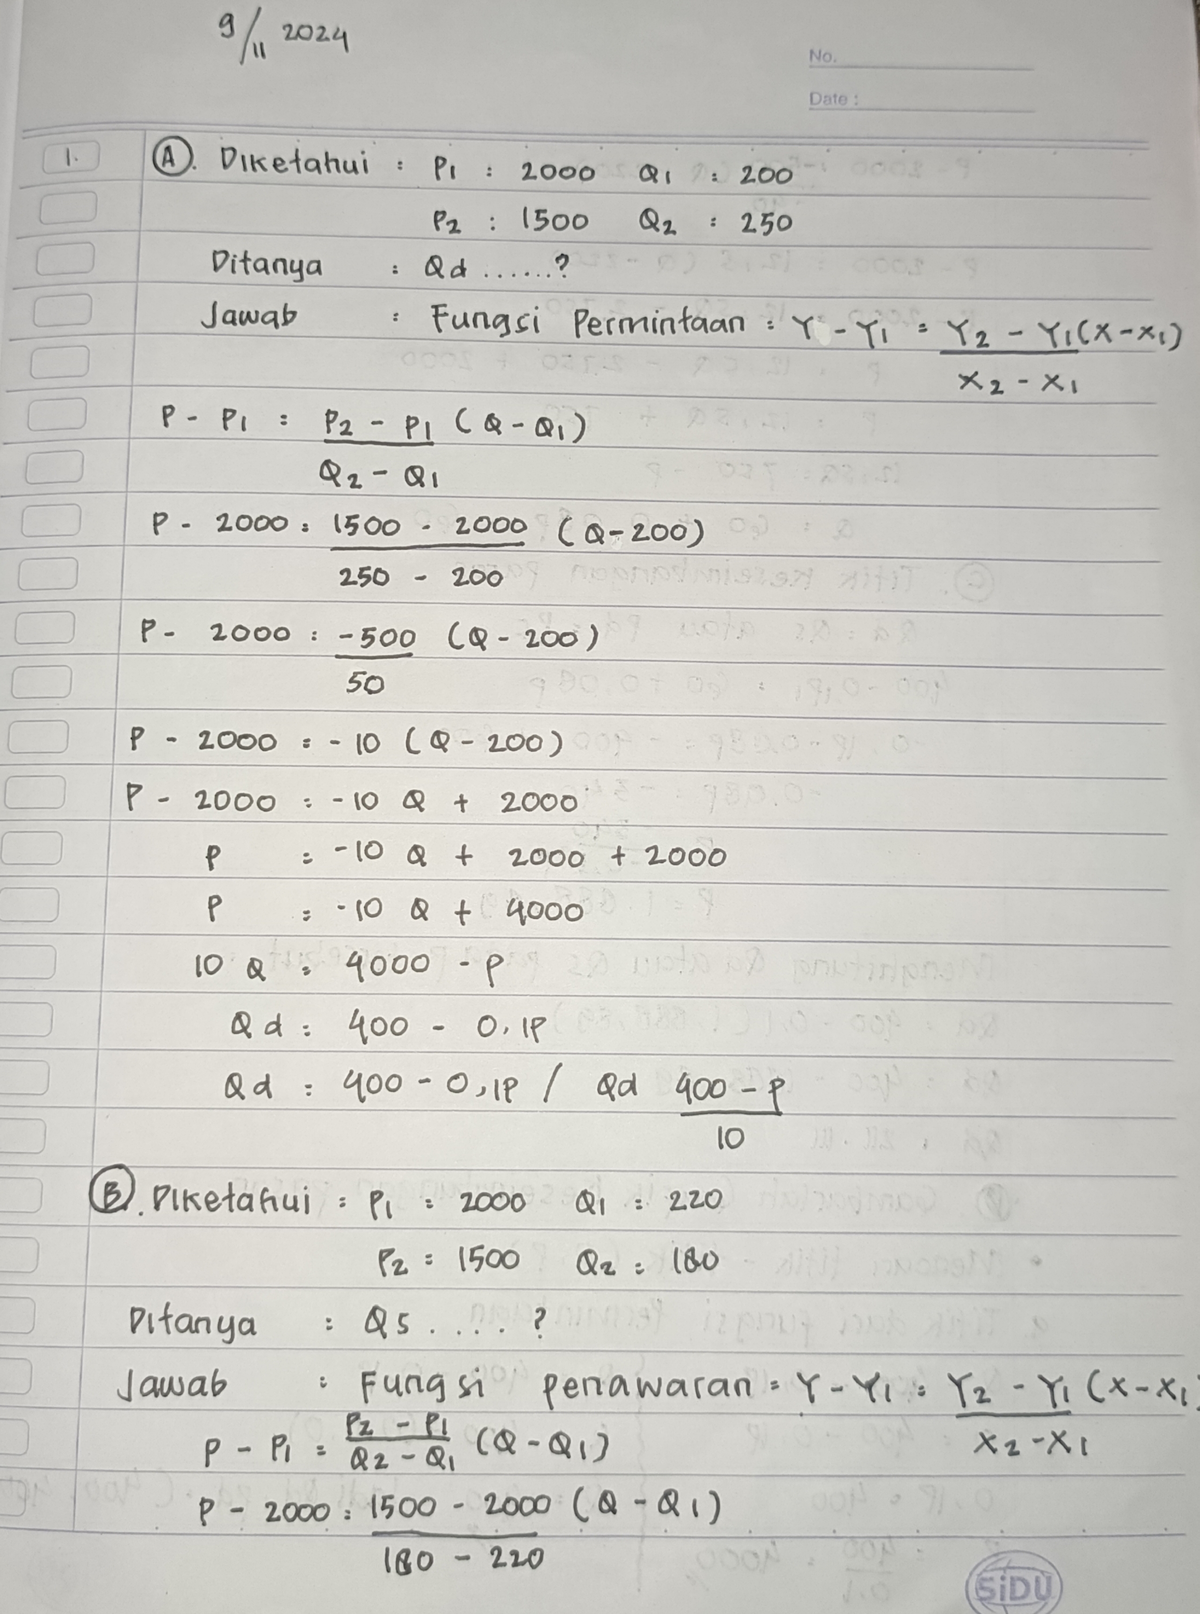 9/11 2024
No.
Date :
1. A. Diketahui : P1 : 2000 Q1 : 200
P2 : 1500 Q2 : 250
Ditanya : Qd ......?
Jawab : Fungsi Permintaan : Y - Y1 = Y2 - Y1 (X - X1)
X2 - X1
P - P1 : P2 - P1 (Q - Q1)
Q2 - Q1
P - 2000 : 1500 - 2000 (Q - 200)
250 - 200
P - 2000 : -500 (Q - 200)
50
P - 2000 : -10 (Q - 200)
P - 2000 : -10 Q + 2000
P : -10 Q + 2000 + 2000
P : -10 Q + 4000
10 Q : 4000 - P
Qd : 400 - 0,1P
Qd : 400 - 0,1P / Qd 400 - P
10
B. Diketahui : P1 : 2000 Q1 : 220
P2 : 1500 Q2 : 180
Ditanya : Qs .....?
Jawab : Fungsi penawaran : Y - Y1 : Y2 - Y1 (X - X1)
X2 - X1
P - P1 = P2 - P1 / Q2 - Q1 (Q - Q1)
P - 2000 : 1500 - 2000 (Q - Q1)
180 - 220
SiDU